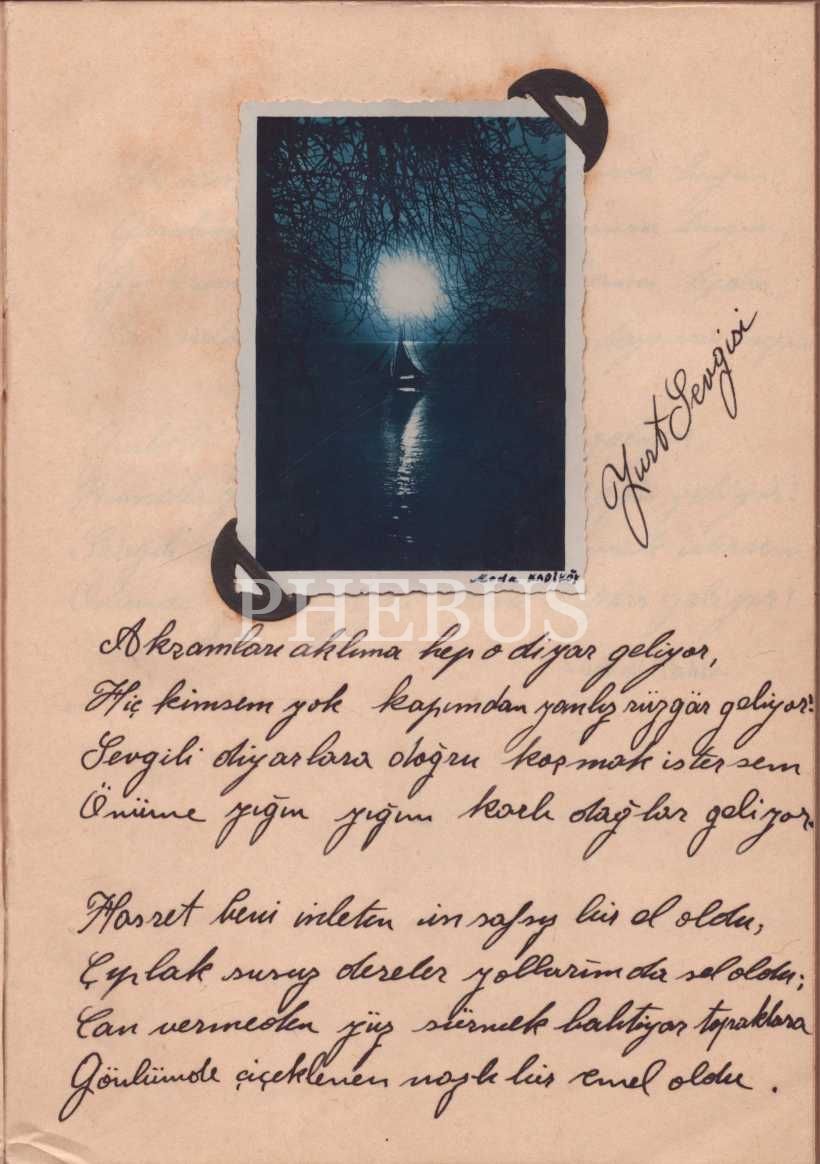 Yurt Sevgisi
Moda KADIKÖY
PHEBUS
Akşamları aklıma hep o diyar geliyor,
Hiç kimsem yok kapımdan yanlız rüzgâr geliyor!
Sevgili diyarlara doğru koşmak istersem
Önüme yığın yığın karlı dağlar geliyor.
Hasret beni inleten insafsız bir el oldu,
Çıplak susuz dereler yollarımda sel oldu;
Can vermeden yüz sürmek bahtiyar topraklara
Gönlümde çiçeklenen nazlı bir emel oldu.